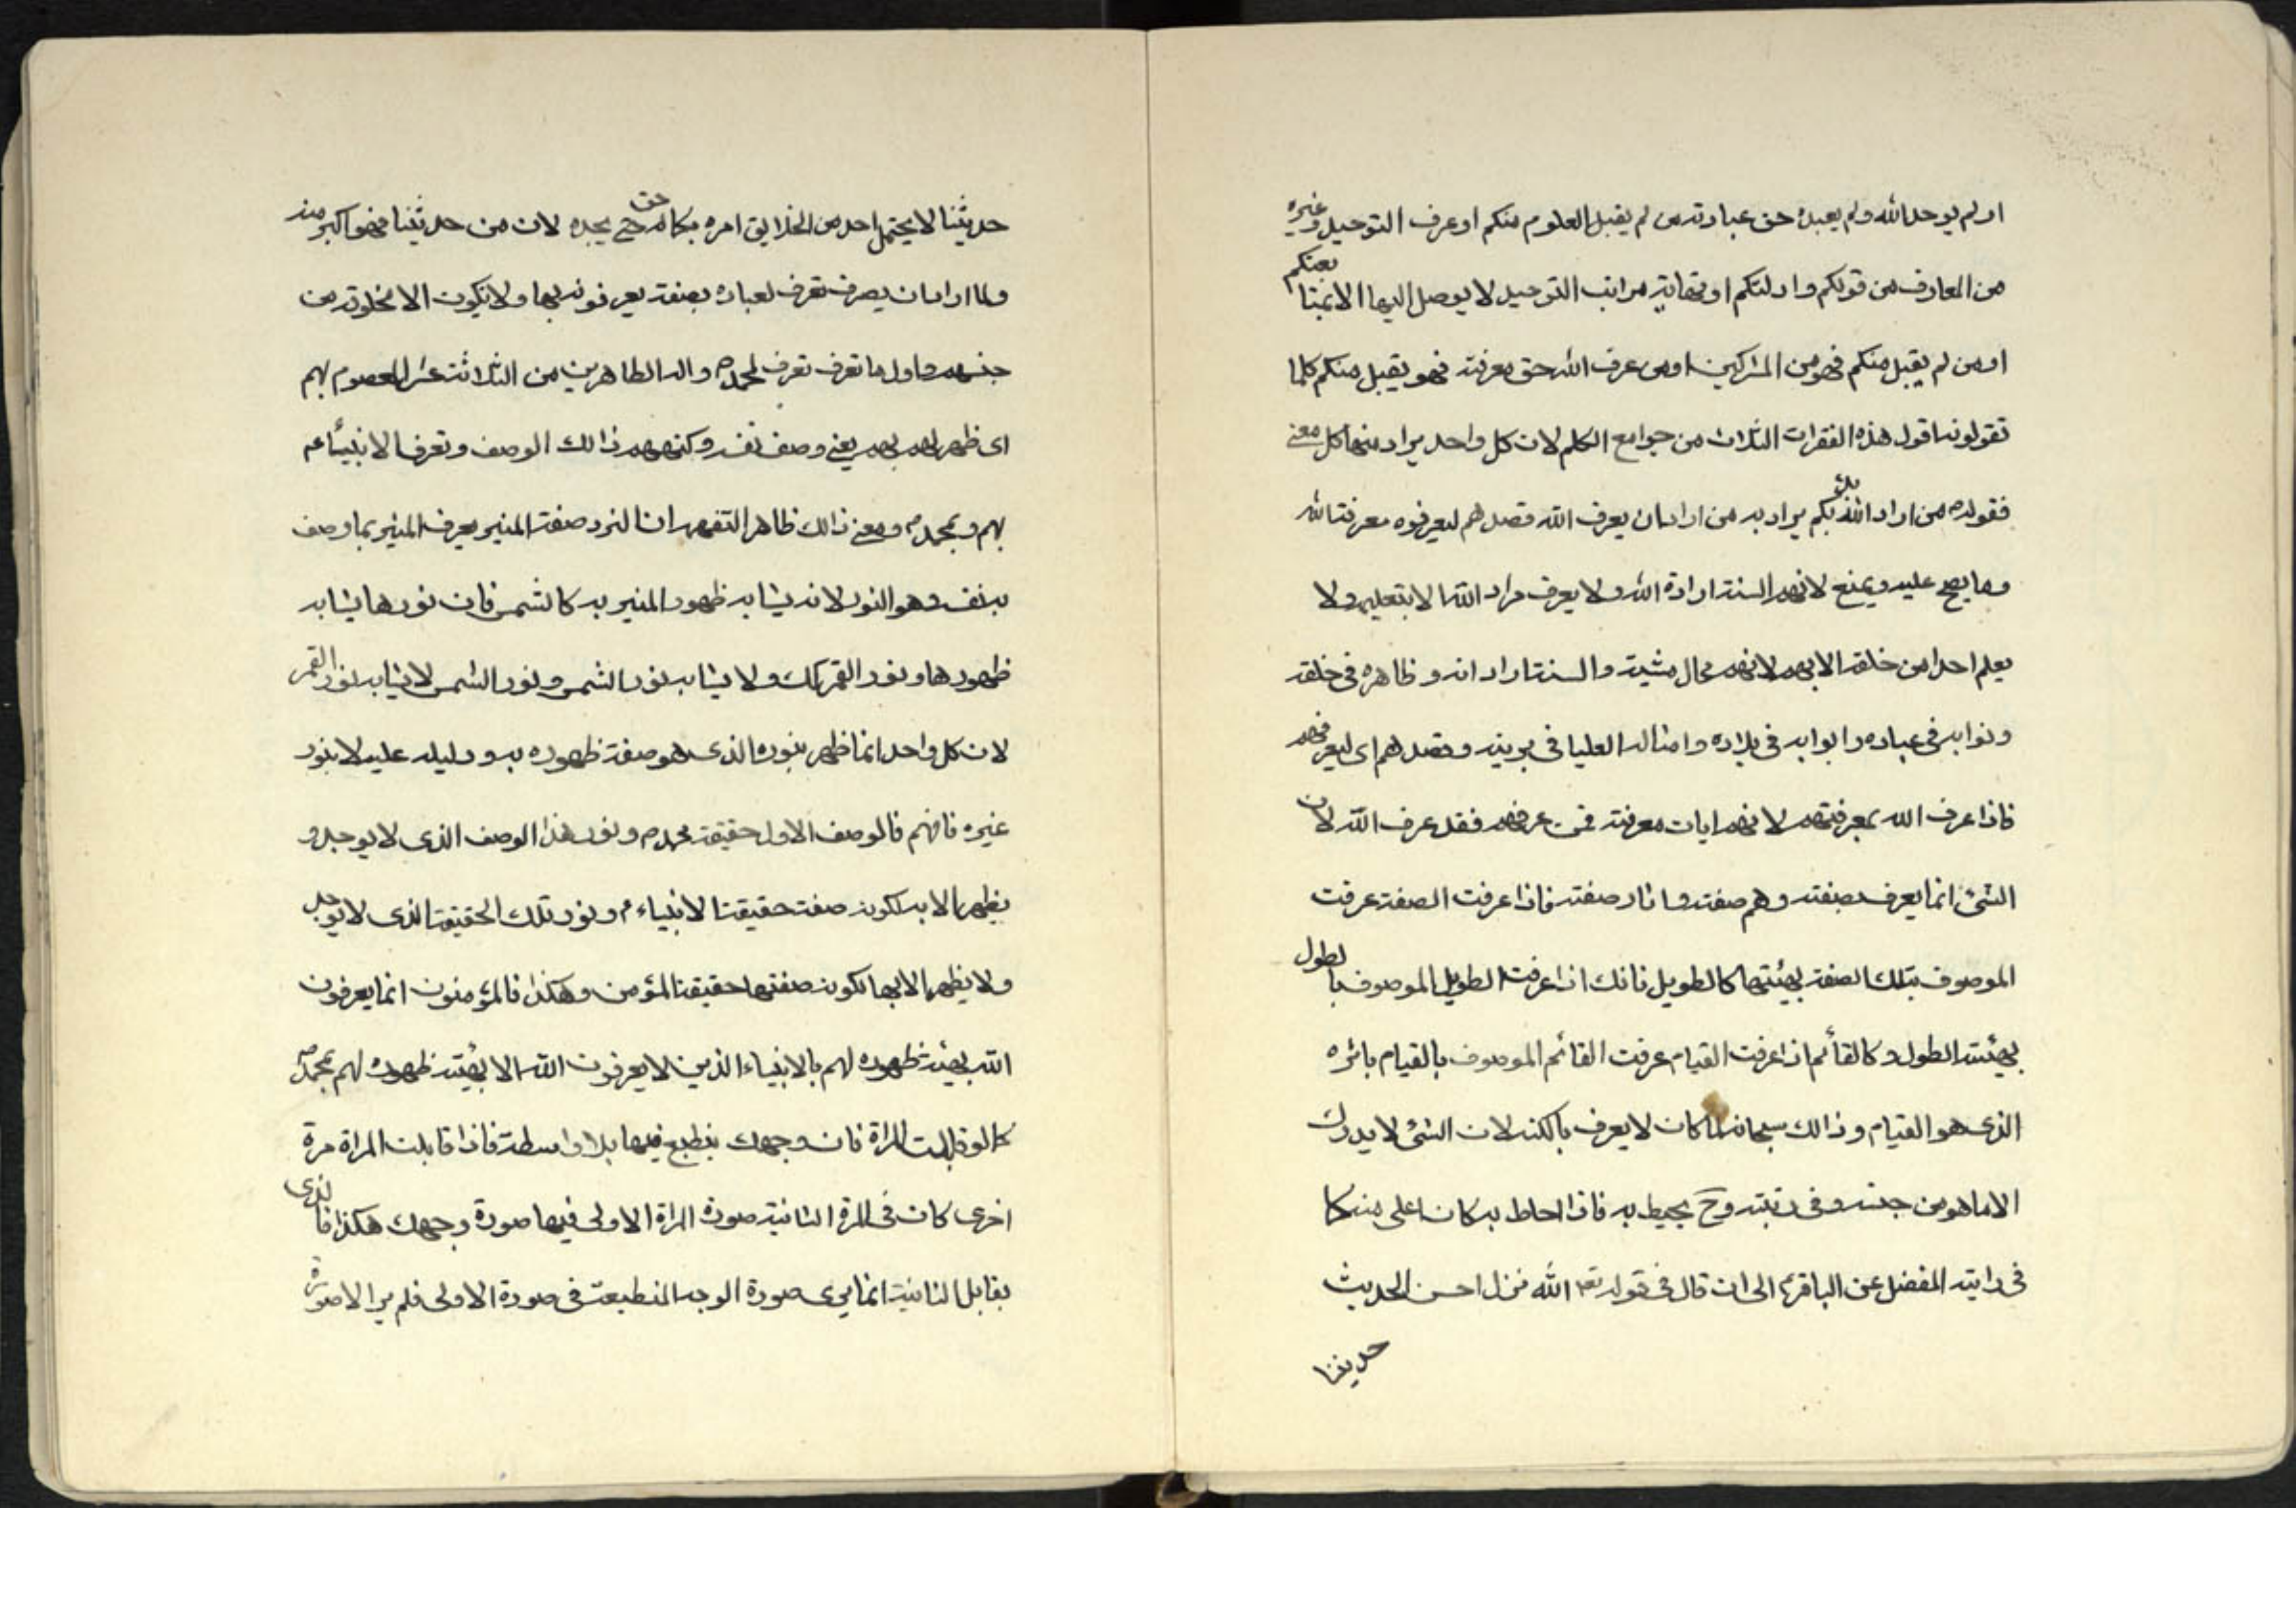 او لم يوحد الله ولم يعبده حق عبادته من لم يقبل العلوم منكم او عرف التوحيد وغيره
من المعارف من قولكم وادلتكم او نهاية مراتب التوحيد لا يوصل اليها الا بمتابعتكم
او من لم يقبل منكم فهو من المشركين او من عرف الله حق معرفته فهو يقبل منكم كلما
تقولونه اقول هذه الفقرات الثلاث من جوامع الكلم لان كل واحد يراد منها كل معنى
فقوله من اراد الله بدء بكم يراد به من اراد ان يعرف الله قصدهم ليعرفوه معرفة الله
وما يصح عليه ويمنع لانهم السنة ارادة الله ولا يعرف مراد الله الا بتعليم ولا
يعلم احدا من خلقه الا بهم لانهم محال مشيته والسنة اراداته وظاهره في خلقه
ونوابه في عباده وابوابه في بلاده وامثاله العليا في بريته وقصدهم اى ليعرفهم
فاذا عرف الله بمعرفتهم لانهم ايات معرفته فمن عرفهم فقد عرف الله لان
الشئ انما يعرف بصفته وهم صفته واثار صفته فاذا عرفت الصفة عرفت
الموصوف بتلك الصفة بهيئتها كالطويل فانك اذا عرفت الطويل الموصوف بالطول
بهيئة الطول وكالقائم اذا عرفت القيام عرفت القائم الموصوف بالقيام باثره
الذى هو القيام وذالك سبحانه لما كان لا يعرف بالكنه لان الشئ لا يدرك
الا ما هو من جنسه وفى رتبته وح يحيط به فاذا احاط به كان اعلى منه كما
فى راية المفضل عن الباقر الى ان قال فى قوله تعه الله نزل احسن الحديث
حديثنا
حديثنا لا يحتمل احد من الخلايق امره بكماله حتى يحده لان من حد يثنا فهو اكبر منه
ولما اراد ان يعرف تعرف لعباده بصفة يعرفونه بها ولا يكون الا مخلوقة من
جنسهم واول ما تعرف تعرف لمحمد ص واله الطاهرين من الثلاثة عشر المعصوم بهم
اى ظهر لهم بهم يعنى وصف نفسه وكنههم ذالك الوصف وتعرف الانبيأ عم
بهم وبمحمد ص ومعنى ذالك ظاهر التفهم ان النور صفة المنير يعرف المنير بما وصف
به نفسه وهو النور لانه يشابه ظهور المنير به كالشمس فان نورها يشابه
ظهورها ونور القمر كك ولا يشابه نور الشمس ونور الشمس لا يشابه نور القمر
لان كل واحد انما ظهر بنوره الذى هو صفة ظهوره به ودليله عليه لا بنور
غيره فافهم فالوصف الاول حقيقة محمد ص ونور هذا الوصف الذى لا يوجد و
يظهر الا به لكونه صفت حقيقة الانبياء م ونور تلك الحقيقة الذى لا يوجد
ولا يظهر الا بها لكونه صفتها حقيقة المؤمن وهكذا فالمؤمنون انما يعرفون
الله بهيئة ظهوره لهم بالانبياء الذين لا يعرفون الله الا بهيئة ظهوره لهم بمحمد ص
كما لو قابلت المراة فان وجهك ينطبع فيها بلا واسطة فاذا قابلت المراة مرة
اخرى كان فى المرة الثانية صورة المراة الاولى فيها صورة وجهك هكذا فالذى
يقابل الثانية انما يرى صورة الوجه المنطبعة فى صورة الاولى فلم ير الا صورة